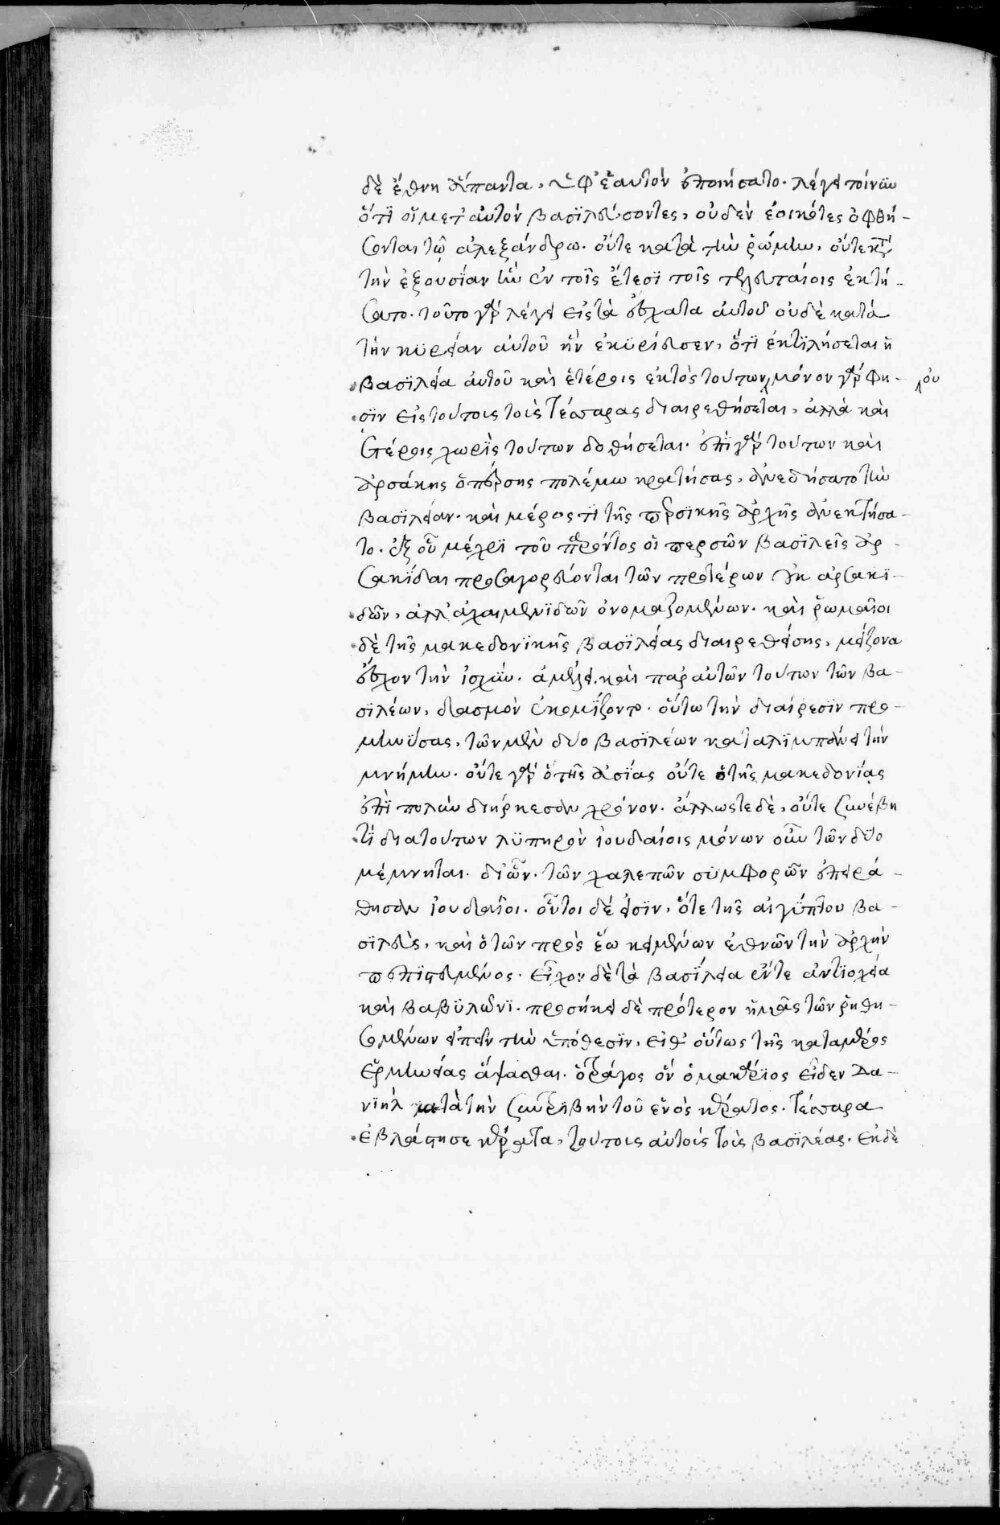 δὲ ἔθνη ἅπαντα, ὑφ' ἑαυτὸν ἐποιήσατο. λέγει τοίνϋν
ὅτϊ οἱ μετ' αὐτὸν βασϊλεύσοντες, οὐδὲν ἐοικότες ὀφθή-
σονται τῷ ἀλεξάνδρω. οὔτε κατὰ τὴν ῥώμην, οὔτε κατὰ
τὴν ἐξουσίαν ἣν ἐν τοῖς ἔτεσϊ τοῖς τελευταίοις ἐκτή-
σατο. τοῦτο γὰρ λέγει εἰς τὰ ἔσχατα αὐτοῦ οὐδὲ κατὰ
τὴν κϋρείαν αὐτοῦ ἣν ἐκϋρίευσεν, ὅτϊ ἐκτϊλήσεται ἡ
βασϊλεία αὐτοῦ καὶ ἑτέροις ἐκτὸς τούτων, μόνον γὰρ φη-
σϊν εἰς τούτοις τοὺς τέσσαρας διαιρεθήσεται, ἀλλὰ καὶ
ἑτέροις χωρὶς τούτων δοθήσεται. ἐπὶ γὰρ τούτων καὶ
ἀρσάκης ὁ πέρσης πολέμω κρατήσας, ἀνεδήσατο τὴν
βασϊλείαν. καὶ μέρος τϊ τῆς περσϊκῆς ἀρχῆς ἀνεκτήσα-
το. ἐξ οὗ μέχρϊ τοῦ παρόντος οἱ περσῶν βασϊλεῖς ἀρ-
σακίδαι προσαγορεύονται τῶν προτέρων οὐκ ἀρσακϊ-
δῶν, ἀλλ' ἀχαιμενϊδῶν ὀνομαζομένων. καὶ ῥωμαῖοι
δὲ τῆς μακεδονϊκῆς βασϊλείας διαιρεθείσης, μείζονα
ἔσχον τὴν ἰσχὺν. ἀμέλει καὶ παρ' αὐτῶν τούτων τῶν βα-
σϊλέων, δασμὸν ἐκομίζοντο. οὕτω τὴν διαίρεσϊν προ-
μηνύσας, τῶν μὲν δύο βασϊλέων καταλϊμπάνει τὴν
μνήμην. οὔτε γὰρ ὁ τῆς ἀσίας οὔτε ὁ τῆς μακεδονίας
ἐπὶ πολὺν διήρκεσαν χρόνον. ἄλλως τε δὲ, οὔτε συνέβη
τϊ διὰ τούτων λϋπηρὸν ἰουδαίοις μόνων οὖν τῶν δύο
μέμνηται. δι' ὧν. τῶν χαλεπῶν σϋμφορῶν ἐπειρά-
θησαν ἰουδαῖοι. οὗτοι δέ εἰσϊν, ὅτε τῆς αἰγύπτου βα-
σϊλεὺς, καὶ ὁ τῶν πρὸς ἕω κειμένων ἐθνῶν τὴν ἀρχὴν
πεπιστευμένος. εἶχον δὲ τὰ βασίλεια ἔν τε ἀντϊοχεία
καὶ βαβϋλῶνϊ. προσήκει δὲ πρότερον ἡμᾶς τῶν ῥηθη-
σομένων εἰπεῖν τὴν ὑπόθεσϊν, εἶθ' οὕτως τῆς κατὰ μέρος
ἑρμηνείας ἅψασθαι. ὁ τράγος ὃν ὁ μακάριος εἶδεν Δα-
νϊὴλ μετὰ τὴν συντρϊβὴν τοῦ ἑνὸς κέρατος. τέσσαρα
ἐβλάστησε κέρατα, τούτοις αὐτοὺς τοὺς βασϊλέας. ἐκ δὲ
λ ου